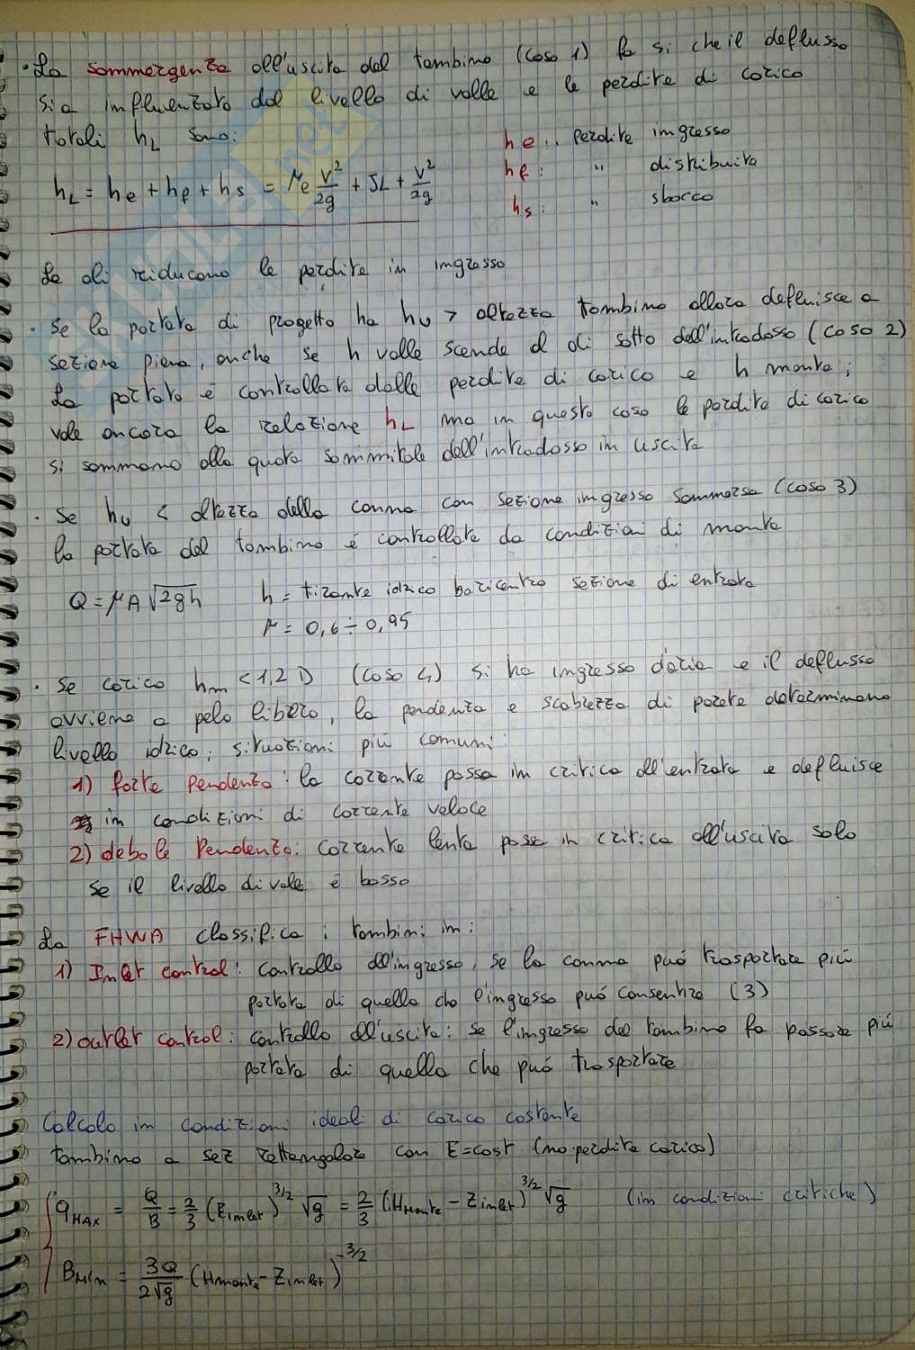 · La sommergenza all'uscita del tombino (caso 1) fa si che il deflusso
sia influenzato dal livello di valle e le perdite di carico
totali hL sono:
he.. perdite ingresso
hf: " distribuite
hs: " sbocco
hL = he + hf + hs = μe V²/2g + JL + V²/2g
Se si riducono le perdite in ingresso
· Se la portata di progetto ha hu > altezza tombino allora defluisce a
sezione piena, anche se h valle scende al di sotto dell'intradosso (caso 2)
La portata è controllata dalle perdite di carico e h monte;
vale ancora la relazione hL ma in questo caso le perdite di carico
si sommano alla quota sommitale dell'intradosso in uscita
· Se hu < altezza della canna con sezione ingresso sommersa (caso 3)
la portata del tombino è controllata da condizioni di monte
Q = μA√2gh h = tirante idrico baricentro sezione di entrata
μ = 0,6 ÷ 0,95
· Se carico hm < 1,2 D (caso 4) si ha ingresso d'aria e il deflusso
avviene a pelo libero, la pendenza e scabrezza di parete determinano
livello idrico; situazioni più comuni:
1) forte pendenza: la corrente passa in critica all'entrata e defluisce
in condizioni di corrente veloce
2) debole Pendenza: corrente lenta passa in critica all'uscita solo
se il livello di valle è basso
La FHWA classifica i tombini in:
1) Inlet control: controllo all'ingresso, se la canna può trasportare più
portata di quella che l'ingresso può consentire (3)
2) outlet control: controllo all'uscita: se l'ingresso del tombino fa passare più
portata di quella che può trasportare
Calcolo in condizioni ideali di carico costante
tombino a sez rettangolare con E=cost (no perdite carico)
qMAX = Q/B = 2/3 (Einlet)^3/2 √g = 2/3 (Hmonte - Zinlet)^3/2 √g (in condizioni critiche)
BMin = 3Q/2√g (Hmonte - Zinlet)^-3/2